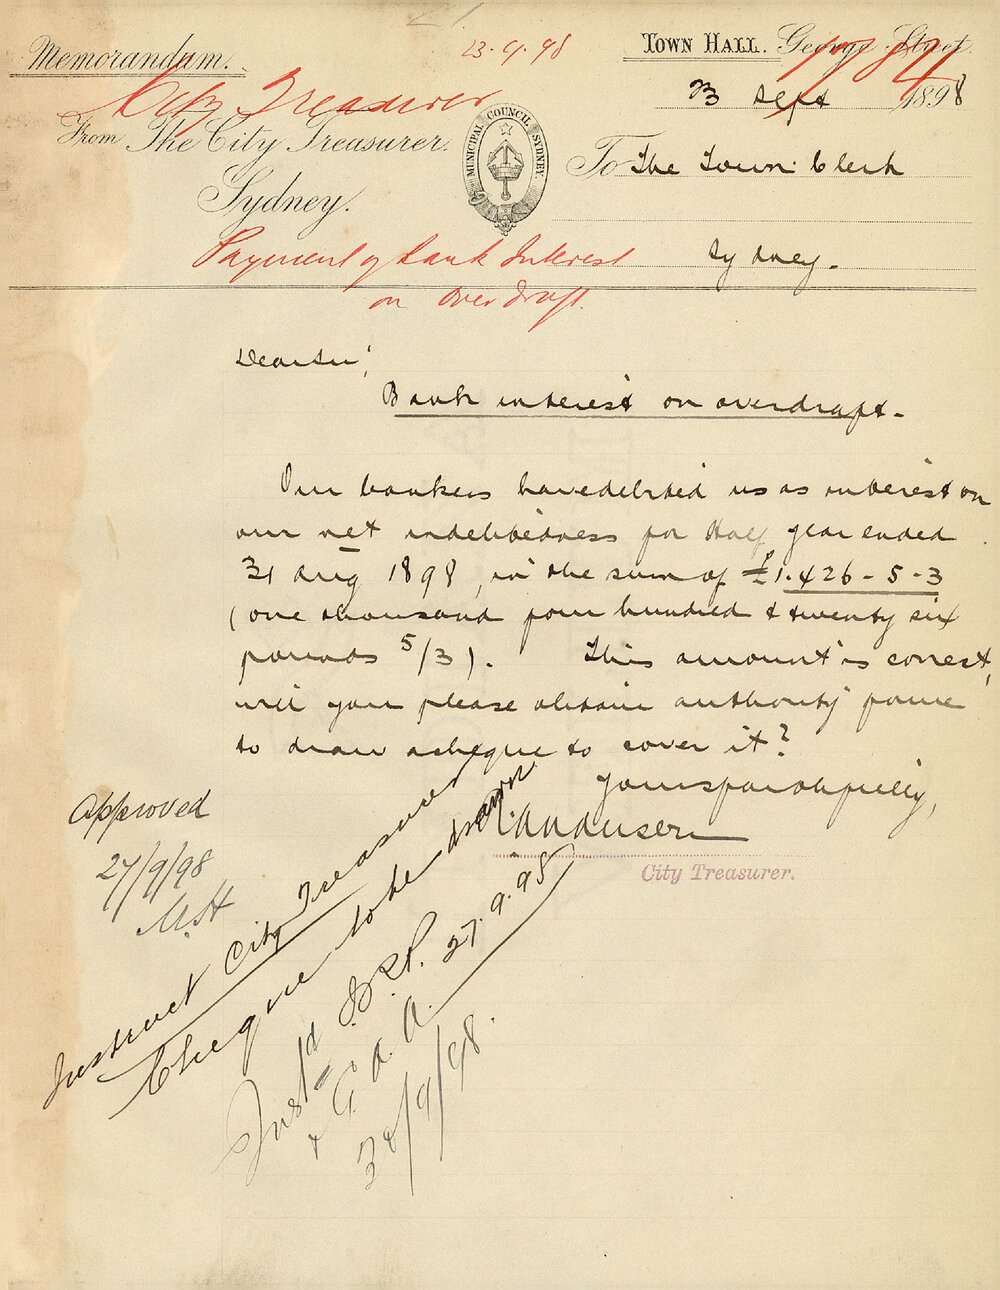 Memorandum.
23.9.98
TOWN HALL. George Street.
23 Sept 1898
City Treasurer
From The City Treasurer.
Sydney.
MUNICIPAL COUNCIL SYDNEY.
To The Town Clerk
Sydney.
Payment of Bank Interest
on Overdraft.
Dear Sir,
Bank interest on overdraft.
Our bankers have debited us as interest on
our net indebtedness for Half year ended
31 Aug 1898, in the sum of £1.426-5-3
(one thousand four hundred & twenty six
pounds 5/3). This amount is correct,
will you please obtain authority for me
to draw a cheque to cover it?
Yours faithfully,
City Treasurer.
Approved
27/9/98
M.H
Instruct City Treasurer
Cheque to be drawn
27.9.98
Inst'd
30/9/98.